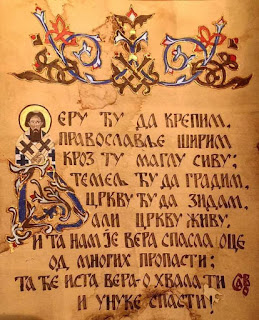 ВЕРУ ЋУ ДА КРЕПИМ,
ПРАВОСЛАВЉЕ ШИРИМ,
КРОЗ ТУ МАГЛУ СИВУ;
ТЕМЕЉ ЋУ ДА ГРАДИМ,
ЦРКВУ ЋУ ДА ЗИДАМ,
АЛИ ЦРКВУ ЖИВУ,
И ТА НАМ ЈЕ ВЕРА СПАСЛА ОЦЕ
ОД МНОГИХ ПРОПАСТИ;
ТА ЋЕ ИСТА ВЕРА-О ХВАЛА ТИ
И УНУКЕ СПАСТИ!